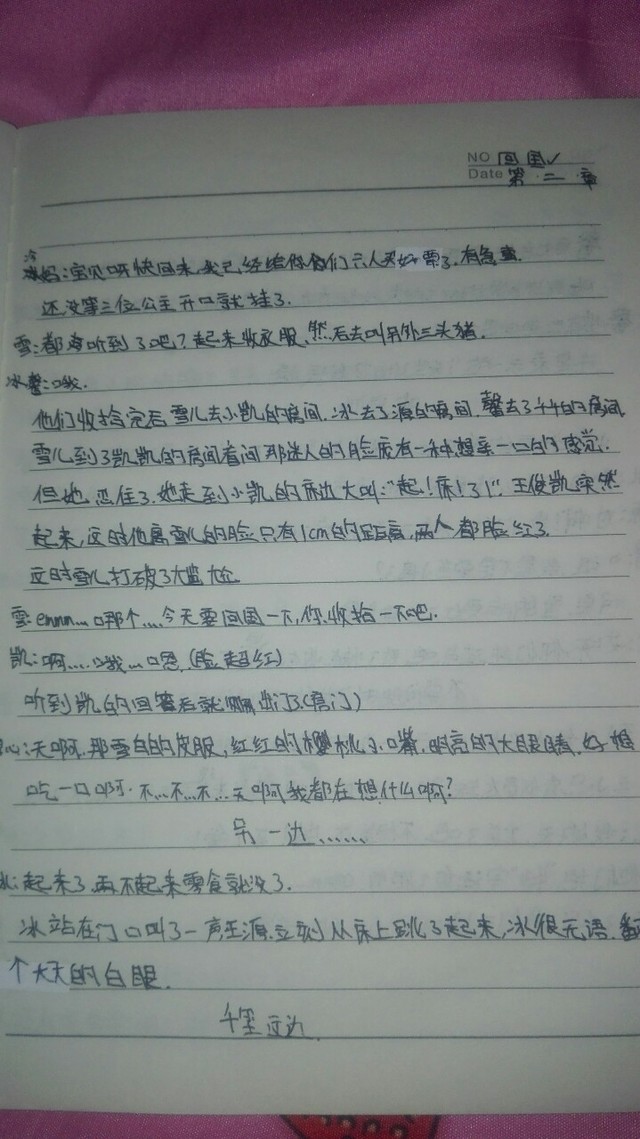 NO 回国✓
Date 第二章
冰妈:宝贝呀快回来,我已经给你们六人买好票了.有急事.
还没等三位公主开口就挂了.
雪:都听到了吧?起来收衣服,然后去叫另外三头猪.
冰馨:哦.
他们收拾完后雪儿去小凯的房间.冰去了源的房间.馨去了千千的房间
雪儿到了凯凯的房间看间那迷人的脸庞有一种想亲一口的感觉.
但她忍住了.她走到小凯的床边大叫:"起!床!了!".王俊凯突然
起来,这时他离雪儿的脸只有1cm的距离,两人都脸红了.
这时雪儿打破了尴尬
雪:emnn...那个....今天要回国一下,你收拾一下吧.
凯:啊.....哦...嗯.(脸超红)
听到凯的回答后就出门了(房门)
心:天啊.那雪白的皮服,红红的樱桃小嘴.明亮的大眼睛.好想
吃一口啊.不...不...不...天啊我都在想什么啊?
另一边......
冰:起来了.再不起来零食就没了.
冰站在门口叫了一声王源立刻从床上跳了起来,冰很无语.翻
个大大的白眼.
千玺这边